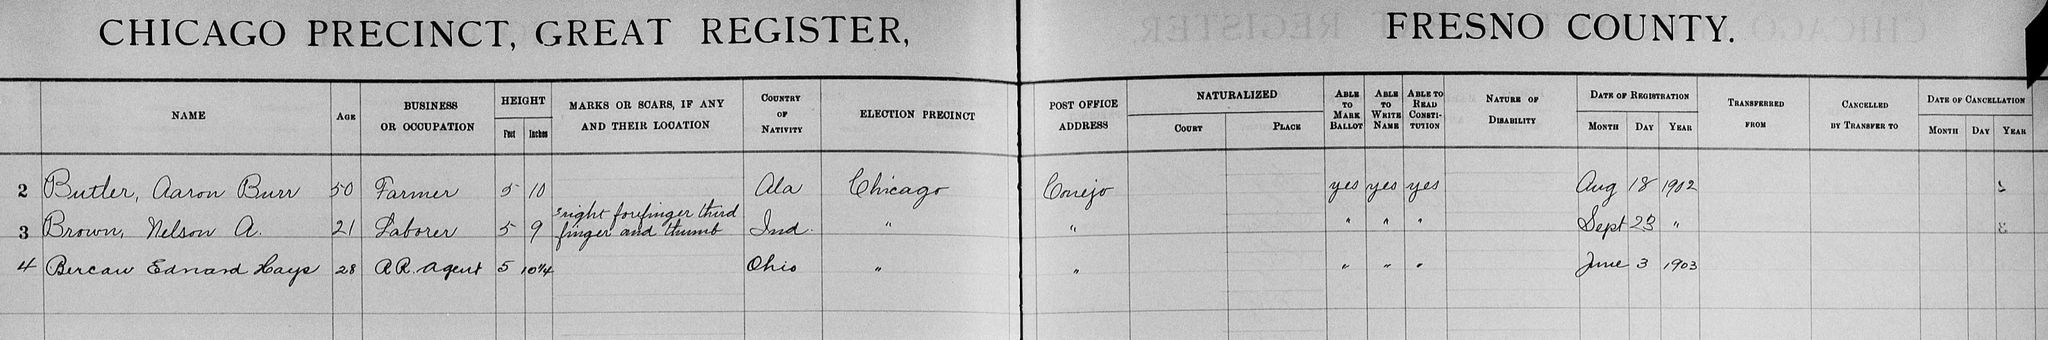 CHICAGO PRECINCT, GREAT REGISTER, FRESNO COUNTY.
NAME AGE BUSINESS OR OCCUPATION HEIGHT Feet Inches MARKS OR SCARS, IF ANY AND THEIR LOCATION COUNTRY OF NATIVITY ELECTION PRECINCT POST OFFICE ADDRESS NATURALIZED COURT PLACE ABLE TO MARK BALLOT ABLE TO WRITE NAME ABLE TO READ CONSTI-TUTION NATURE OF DISABILITY DATE OF REGISTRATION MONTH DAY YEAR TRANSFERRED FROM CANCELLED BY TRANSFER TO DATE OF CANCELLATION MONTH DAY YEAR
2 Butler, Aaron Burr 50 Farmer 5 10 Ala Chicago Conejo yes yes yes Aug 18 1902
3 Brown, Nelson A. 21 Laborer 5 9 right forefinger third finger and thumb Ind. " " " " " Sept 23 "
4 Bercaw Edward Hays 28 RR. Agent 5 10¼ Ohio " " " " " June 3 1903